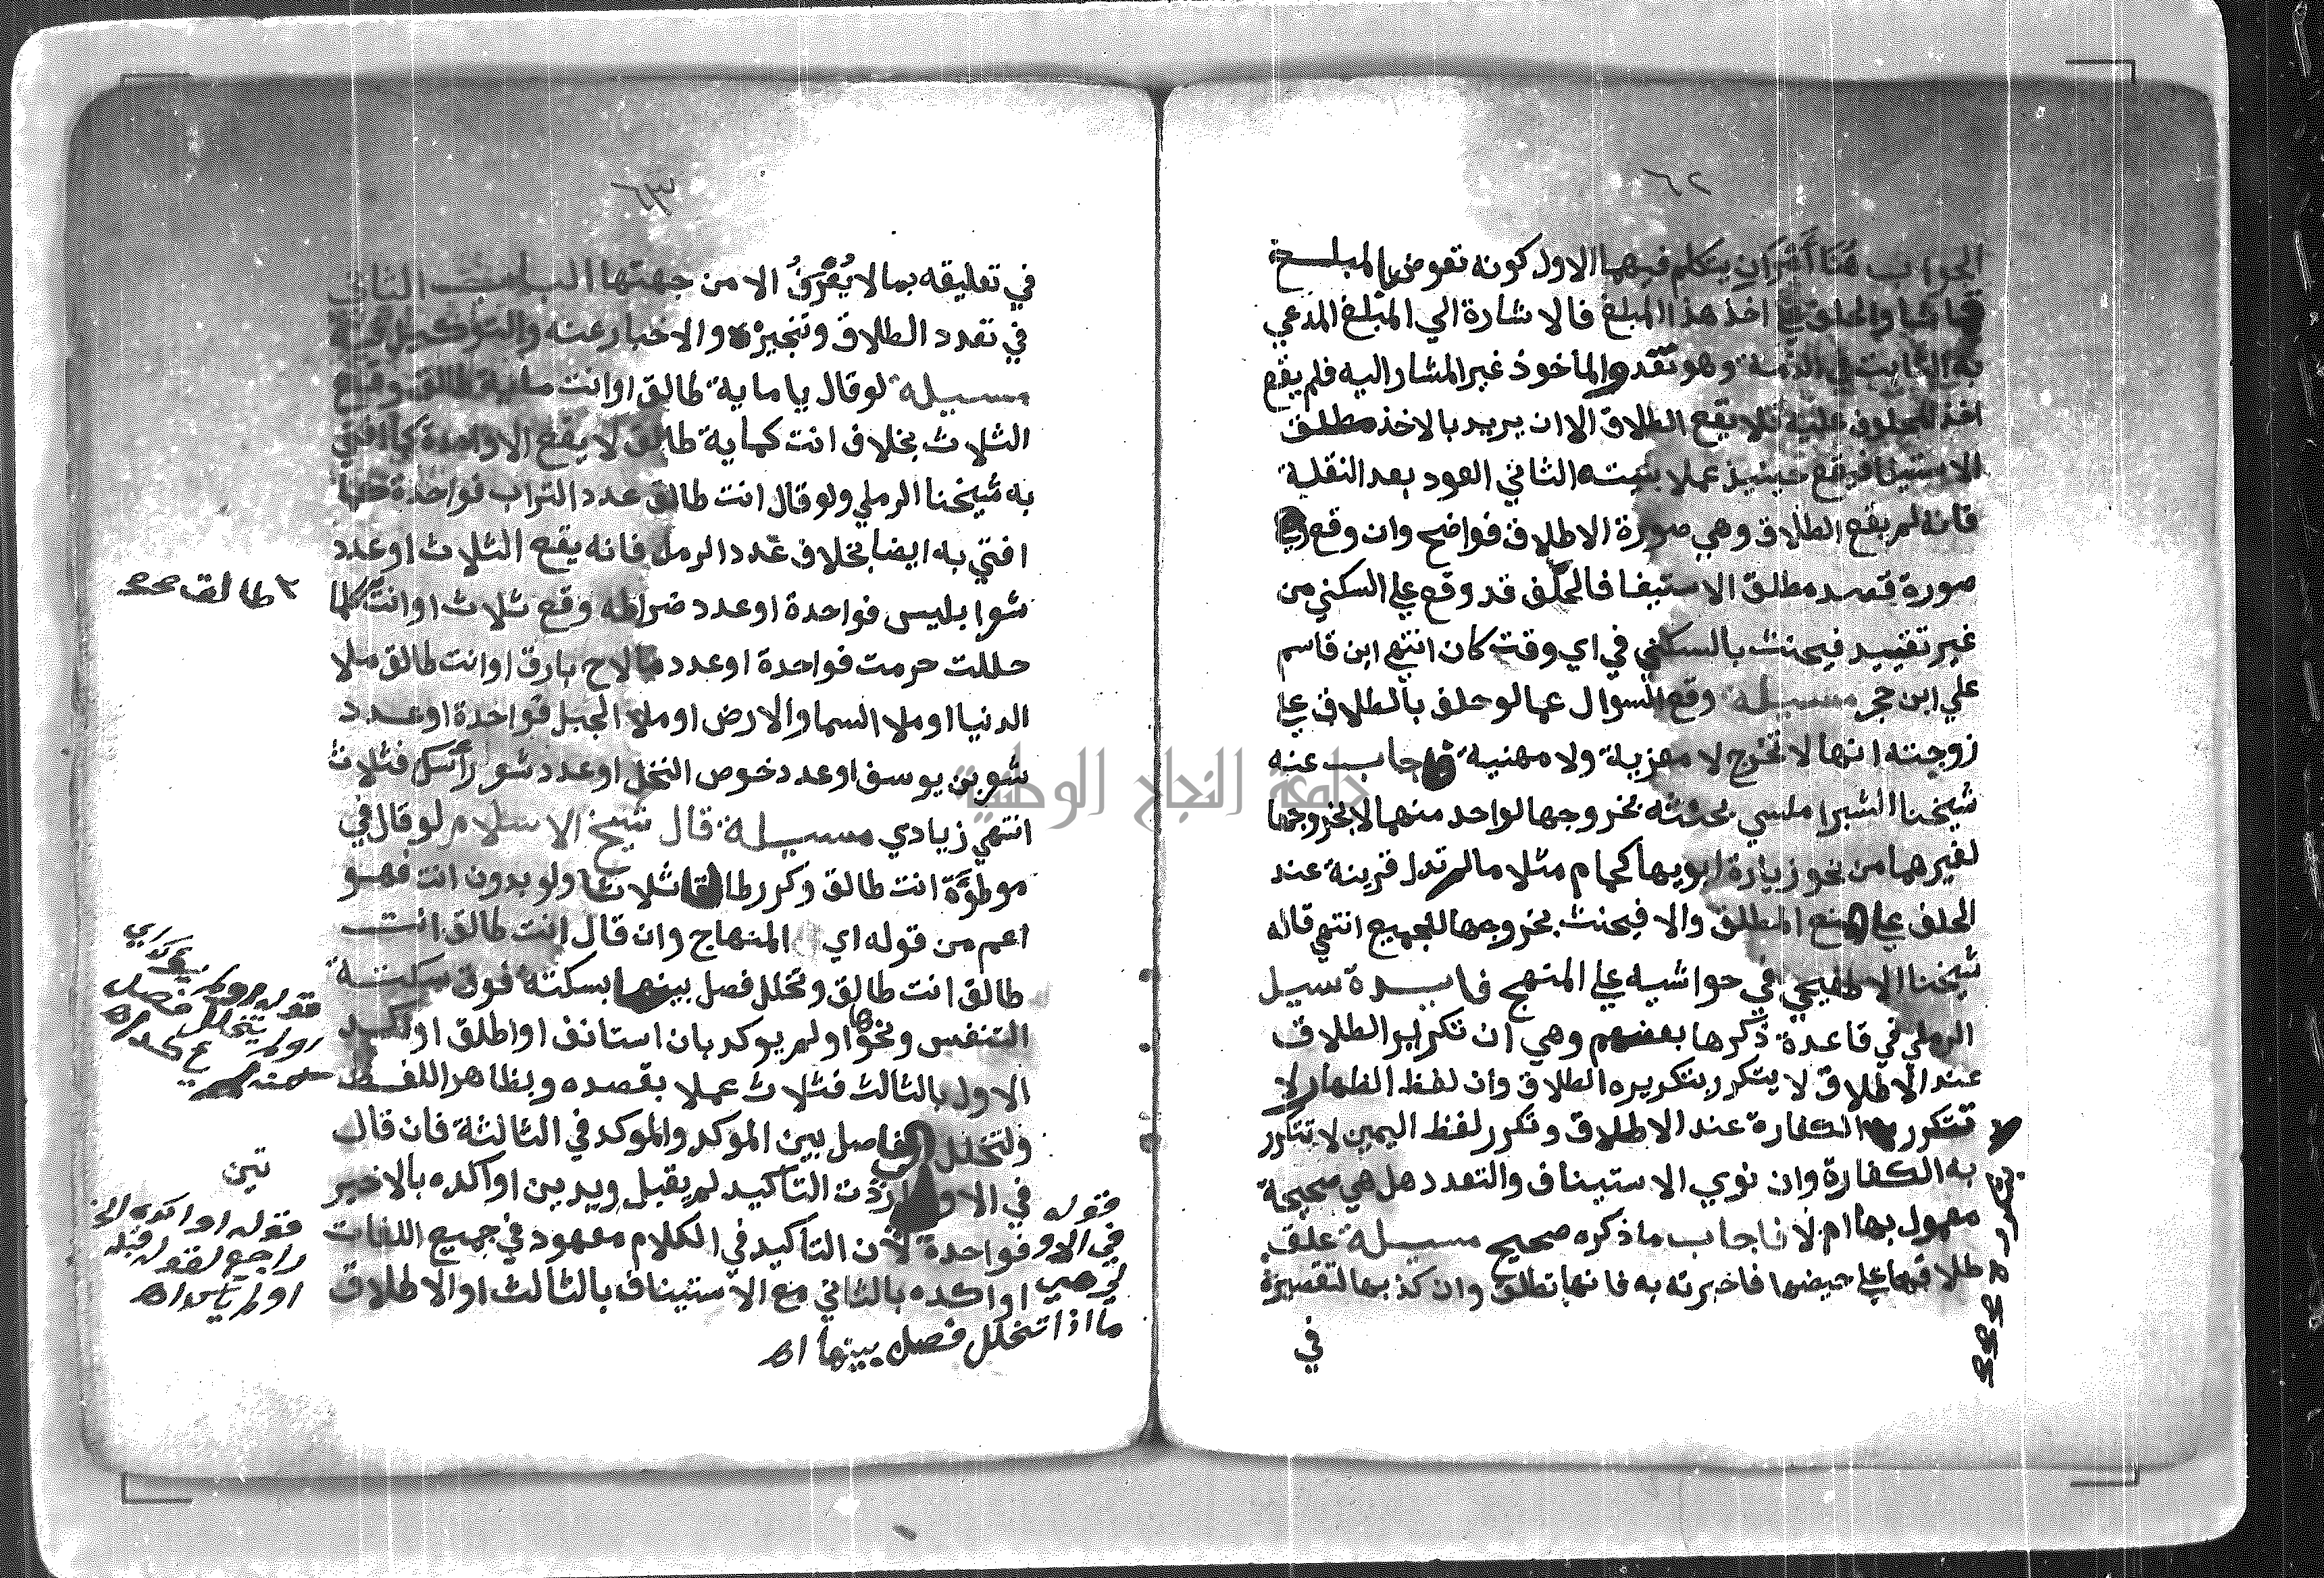 ٦٢
الجواب هنا أمران يتكلم فيهما الاول كونه تعوض بالمبلغ
قماشا والحلوى اخذ هذا المبلغ فالاشارة الي المبلغ المدعي
به الثابت في الذمة وهو نقد والمأخوذ غير المشار اليه فلم يقع
اخذ المحلوف عليه فلا يقع الطلاق الا ان يريد بالاخذ مطلق
الاستيفا فيقع حينيذ عملا بنيته الثاني العود بعد النقلة
فانه لم يقع الطلاق وهي صورة الاطلاق فواضح وان وقع في
صورة قصد مطلق الاستيفا فالحلف قد وقع علي السكني من
غير تقييد فيحنث بالسكني في اي وقت كان انتهي ابن قاسم
علي ابن حجر مسيلة وقع السوال عما لو حلف بالطلاق علي
زوجته انها لا تخرج لا معزية ولا مهنية فاجاب عنه
شيخنا الشبراملسي بحنثه بخروجها لواحد منهما لا بخروجها
لغيرهما من نحو زيارة ابويها كحمام مثلا ما لم تدل قرينة عند
الحلف علي المنع المطلق والا فيحنث بخروجها للجميع انتهي قاله
شيخنا الاطفيحي في حواشيه علي المنهج فايدة سيل
الرملي في قاعدة ذكرها بعضهم وهي ان تكرار الطلاق
عند الاطلاق لا يتكرر بتكريره الطلاق وان لفظ الظهار لا
تتكرر به الكفارة عند الاطلاق وتكرر لفظ اليمين لا تتكرر
به الكفارة وان نوي الاستيناف والتعدد هل هي صحيحة
معمول بها ام لا فاجاب ما ذكره صحيح مسيلة علق
طلاقها علي حيضها فاخبرته به فانها تطلق وان كذبها لتقصيره
في
٦٣
في تعليقه بما لا يعرف الا من جهتها الباب الثاني
في تعدد الطلاق وتنجيزه والاخبار عنه والتوكيل فيه
مسيلة لو قال يا ماية طالق او انت ماية طالق وقع
الثلاث بخلاف انت كماية طالق لا يقع الا واحدة كما افتي
به شيخنا الرملي ولو قال انت طالق عدد التراب فواحدة كما
افتي به ايضا بخلاف عدد الرمل فانه يقع الثلاث او عدد
شعر ابليس فواحدة او عدد ضراطه وقع ثلاث او انت كلما
٢ طالق صح
حللت حرمت فواحدة او عدد ما لاح بارق او انت طالق ملا
الدنيا او ملا السما والارض او ملا الجبل فواحدة او عدد
شعر بن يوسف او عدد خوص النخل او عدد شعر رأسك فثلاث
انتهي زيادي مسيلة قال شيخ الاسلام لو قال في
موطؤة انت طالق وكرر طالقا ثلاثا ولو بدون انت فهو
اعم من قوله اي المنهاج وان قال انت طالق انت
طالق انت طالق وتخلل فصل بينهما بسكتة فوق سكتة
التنفس ونحوها او لم يوكد بان استانف او اطلق او اكد
الاول بالثالث فثلاث عملا بقصده وبظاهر اللفظ
ولتخلل الفاصل بين الموكد والموكد في الثالثة فان قال
في الاولي اردت التأكيد لم يقبل ويدين او اكده بالاخير
فواحدة لان التأكيد في الكلام معهود في جميع اللغات
او اكده بالثاني مع الاستيناف بالثالث او الاطلاق
تين
قوله او اكده الخ
راجع لقوله قبله
قوله
في الاو
لي هي
ما اذا تخلل فصل بينهما اه